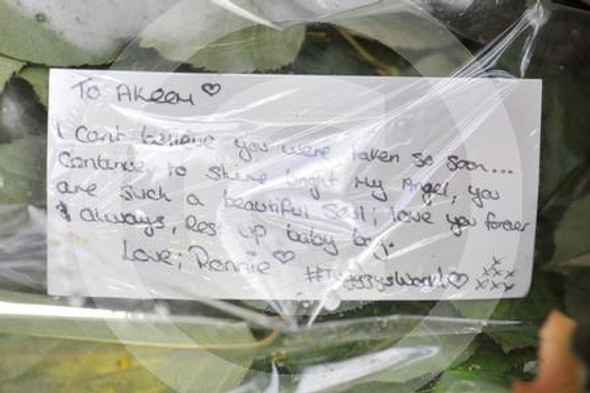 To Akeem ♡
I Cant believe you were taken so soon...
Continue to shine bright My Angel, you
are such a beautiful Soul; love you forever
& always, Rest up baby boy.
Love; Rennie ♡
x
xxx
xxx